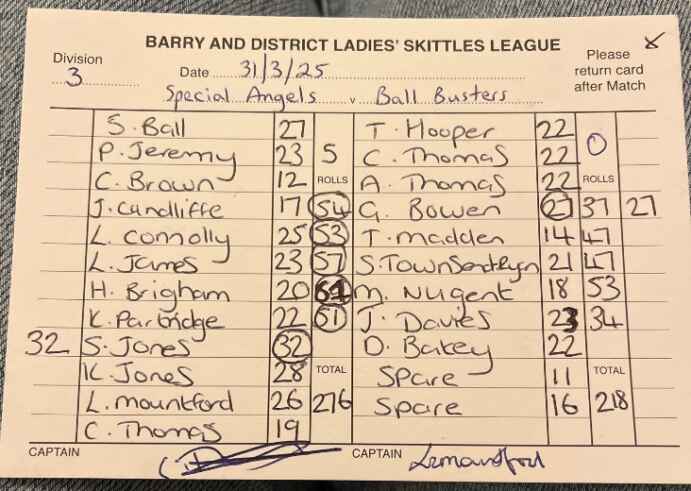 BARRY AND DISTRICT LADIES' SKITTLES LEAGUE
Please return card after Match
Division 3
Date 31/3/25
Special Angels v Ball Busters
S. Ball 27 T. Hooper 22
P. Jeremy 23 5 C. Thomas 22 0
C. Brown 12 ROLLS A. Thomas 22 ROLLS
J. Cundliffe 17 54 G. Bowen 27 37 27
L. Connolly 25 53 T. Madden 14 47
L. James 23 57 S. 21 47
H. Brigham 20 M. Nugent 18 53
K. Partridge 22 51 J. Davies 23 34
32 S. Jones 32 D. Bakey 22
K. Jones 28 TOTAL Spare 11 TOTAL
L. Mountford 26 276 Spare 16 218
C. Thomas 19
CAPTAIN CAPTAIN